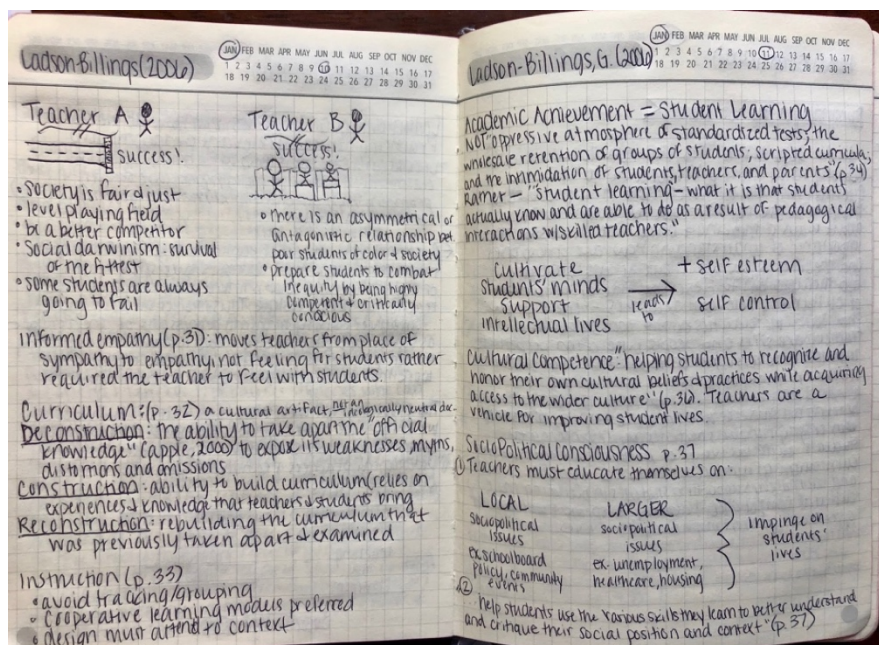 Ladson-Billings (2006)
JAN FEB MAR APR MAY JUN JUL AUG SEP OCT NOV DEC
1 2 3 4 5 6 7 8 9 10 11 12 13 14 15 16 17
18 19 20 21 22 23 24 25 26 27 28 29 30 31
Teacher A
success!
• society is fair & just
• level playing field
• be a better competitor
• social darwinism: survival
of the fittest
• some students are always
going to fail
Teacher B
success!
• there is an asymmetrical or
antagonistic relationship bet
poor students of color & society
• prepare students to combat
inequity by being highly
competent & critically
conscious
informed empathy (p.31): moves teachers from place of
sympathy to empathy, not feeling for students rather
required the teacher to feel with students.
Curriculum: (p. 32) a cultural artifact, not an ideologically neutral doc.
Deconstruction: the ability to take apart the "official
knowledge" (apple, 2000) to expose its weaknesses, myths,
distortions and omissions
Construction: ability to build curriculum (relies on
experiences & knowledge that teachers & students bring
Reconstruction: rebuilding the curriculum that
was previously taken apart & examined
Instruction (p. 33)
• avoid tracking/grouping
• cooperative learning models preferred
• design must attend to context
Ladson-Billings, G. (2006)
JAN FEB MAR APR MAY JUN JUL AUG SEP OCT NOV DEC
1 2 3 4 5 6 7 8 9 10 11 12 13 14 15 16 17
18 19 20 21 22 23 24 25 26 27 28 29 30 31
Academic Achievement = Student Learning
NOT "oppressive atmosphere of standardized tests, the
wholesale retention of groups of students, scripted curricula,
and the intimidation of students, teachers, and parents" (p.34)
Rather - "student learning - what it is that students
actually know and are able to do as a result of pedagogical
interactions w/skilled teachers."
Cultivate
students' minds
Support
intellectual lives
leads to
+ self esteem
self control
Cultural Competence "helping students to recognize and
honor their own cultural beliefs & practices while acquiring
access to the wider culture" (p.36). Teachers are a
vehicle for improving student lives.
SocioPolitical Consciousness p. 37
① Teachers must educate themselves on:
LOCAL
sociopolitical
issues
ex. schoolboard
policy, community
events
LARGER
sociopolitical
issues
ex. unemployment,
healthcare, housing
impinge on
students'
lives
②
"help students use the various skills they learn to better understand
and critique their social position and context" (p.37)